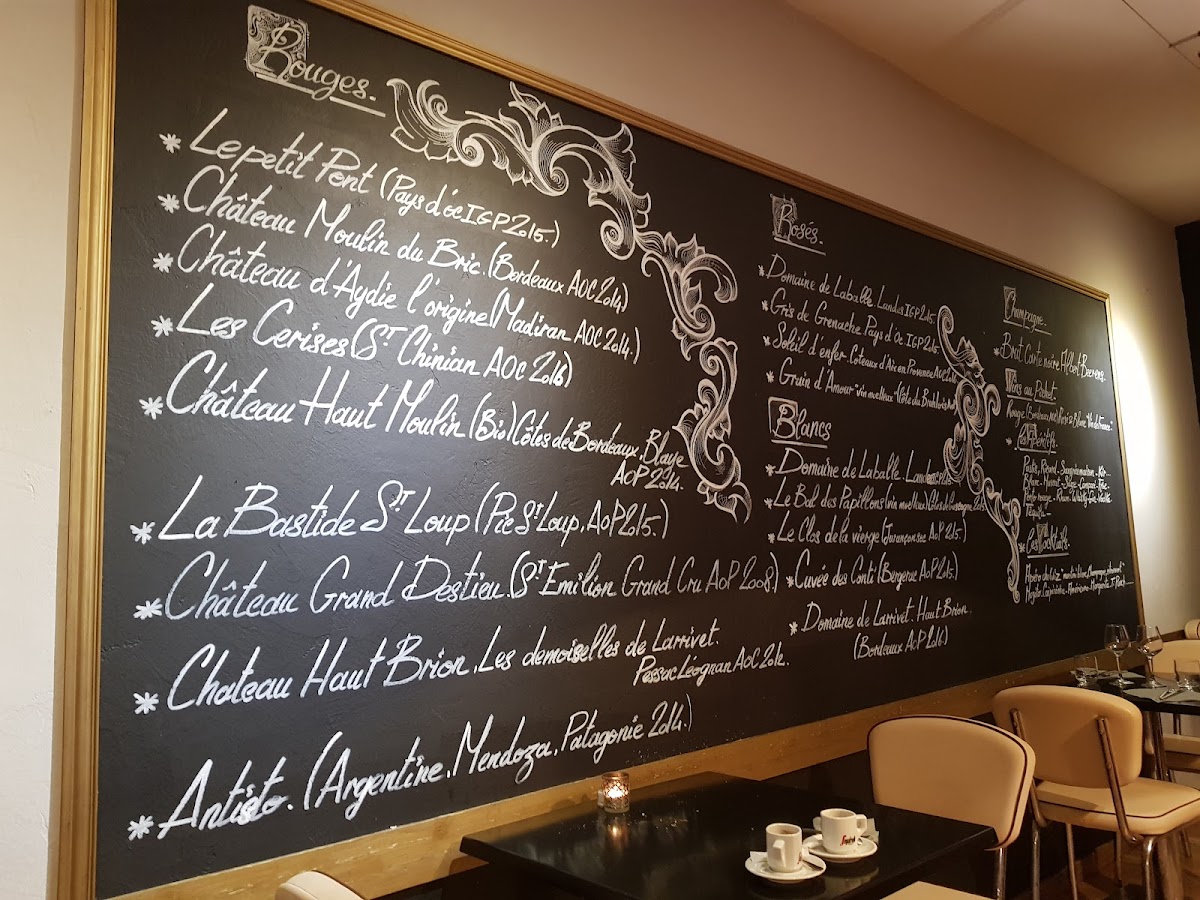 Rouges.
* Le petit Pont (Pays d'oc IGP 2015.)
* Château Moulin du Bric. (Bordeaux AOC 2014)
* Château d'Aydie l'origine (Madiran AOC 2014.)
* Les Cerises (St Chinian AOC 2016)
* Château Haut Moulin (Bio) Côtes de Bordeaux. Blaye
AOP 2014.
* La Bastide St Loup (Pic St Loup, AOP 2015.)
* Château Grand Destieu. (St Emilion Grand Cru AOP 2008.)
* Chateau Haut Brion. Les demoiselles de Larrivet.
Pessac Leognan AOC 2012.
* Antisto. (Argentine. Mendoza. Patagonie 2014.)
Rosés.
* Domaine de Laballe Landes IGP 2015.
* Gris de Grenache Pays d'Oc IGP 2015.
* Soleil d'enfer Coteaux d'Aix en Provence AOC
* Grain d'Amour "vin moelleux"
Blancs
* Domaine de Laballe
* Le Bal des Papillons (vin moelleux) Côtes de Gascogne
* Le Clos de la vierge (Jurançon sec AOP 2015.)
* Cuvée des Conti (Bergerac AOP 2015)
* Domaine de Larrivet. Haut Brion.
(Bordeaux AOP 2016)
Champagne.
* Brut Carte noire Albert Beerens.
* Vins au Pichet.
Rouge
* Les Apéritifs.
* Les Cocktails.